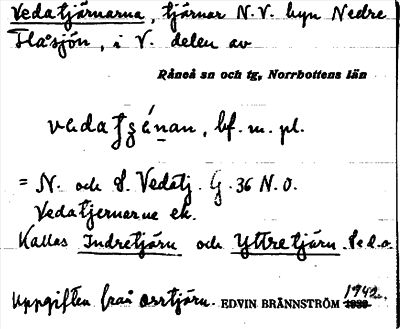 Vedatjärnarna, tjärnar N.V. byn Nedre
Flåsjön, i V. delen av
Råneå sn och tg, Norrbottens län
bf. m. pl.
= N. och S. Vedatj. G. 36 N.O.
Vedatjernarne ek.
Kallas Indretjärn och Yttretjärn. Se d.o.
Uppgiften från Orrtjärn. EDVIN BRÄNNSTRÖM 1942.